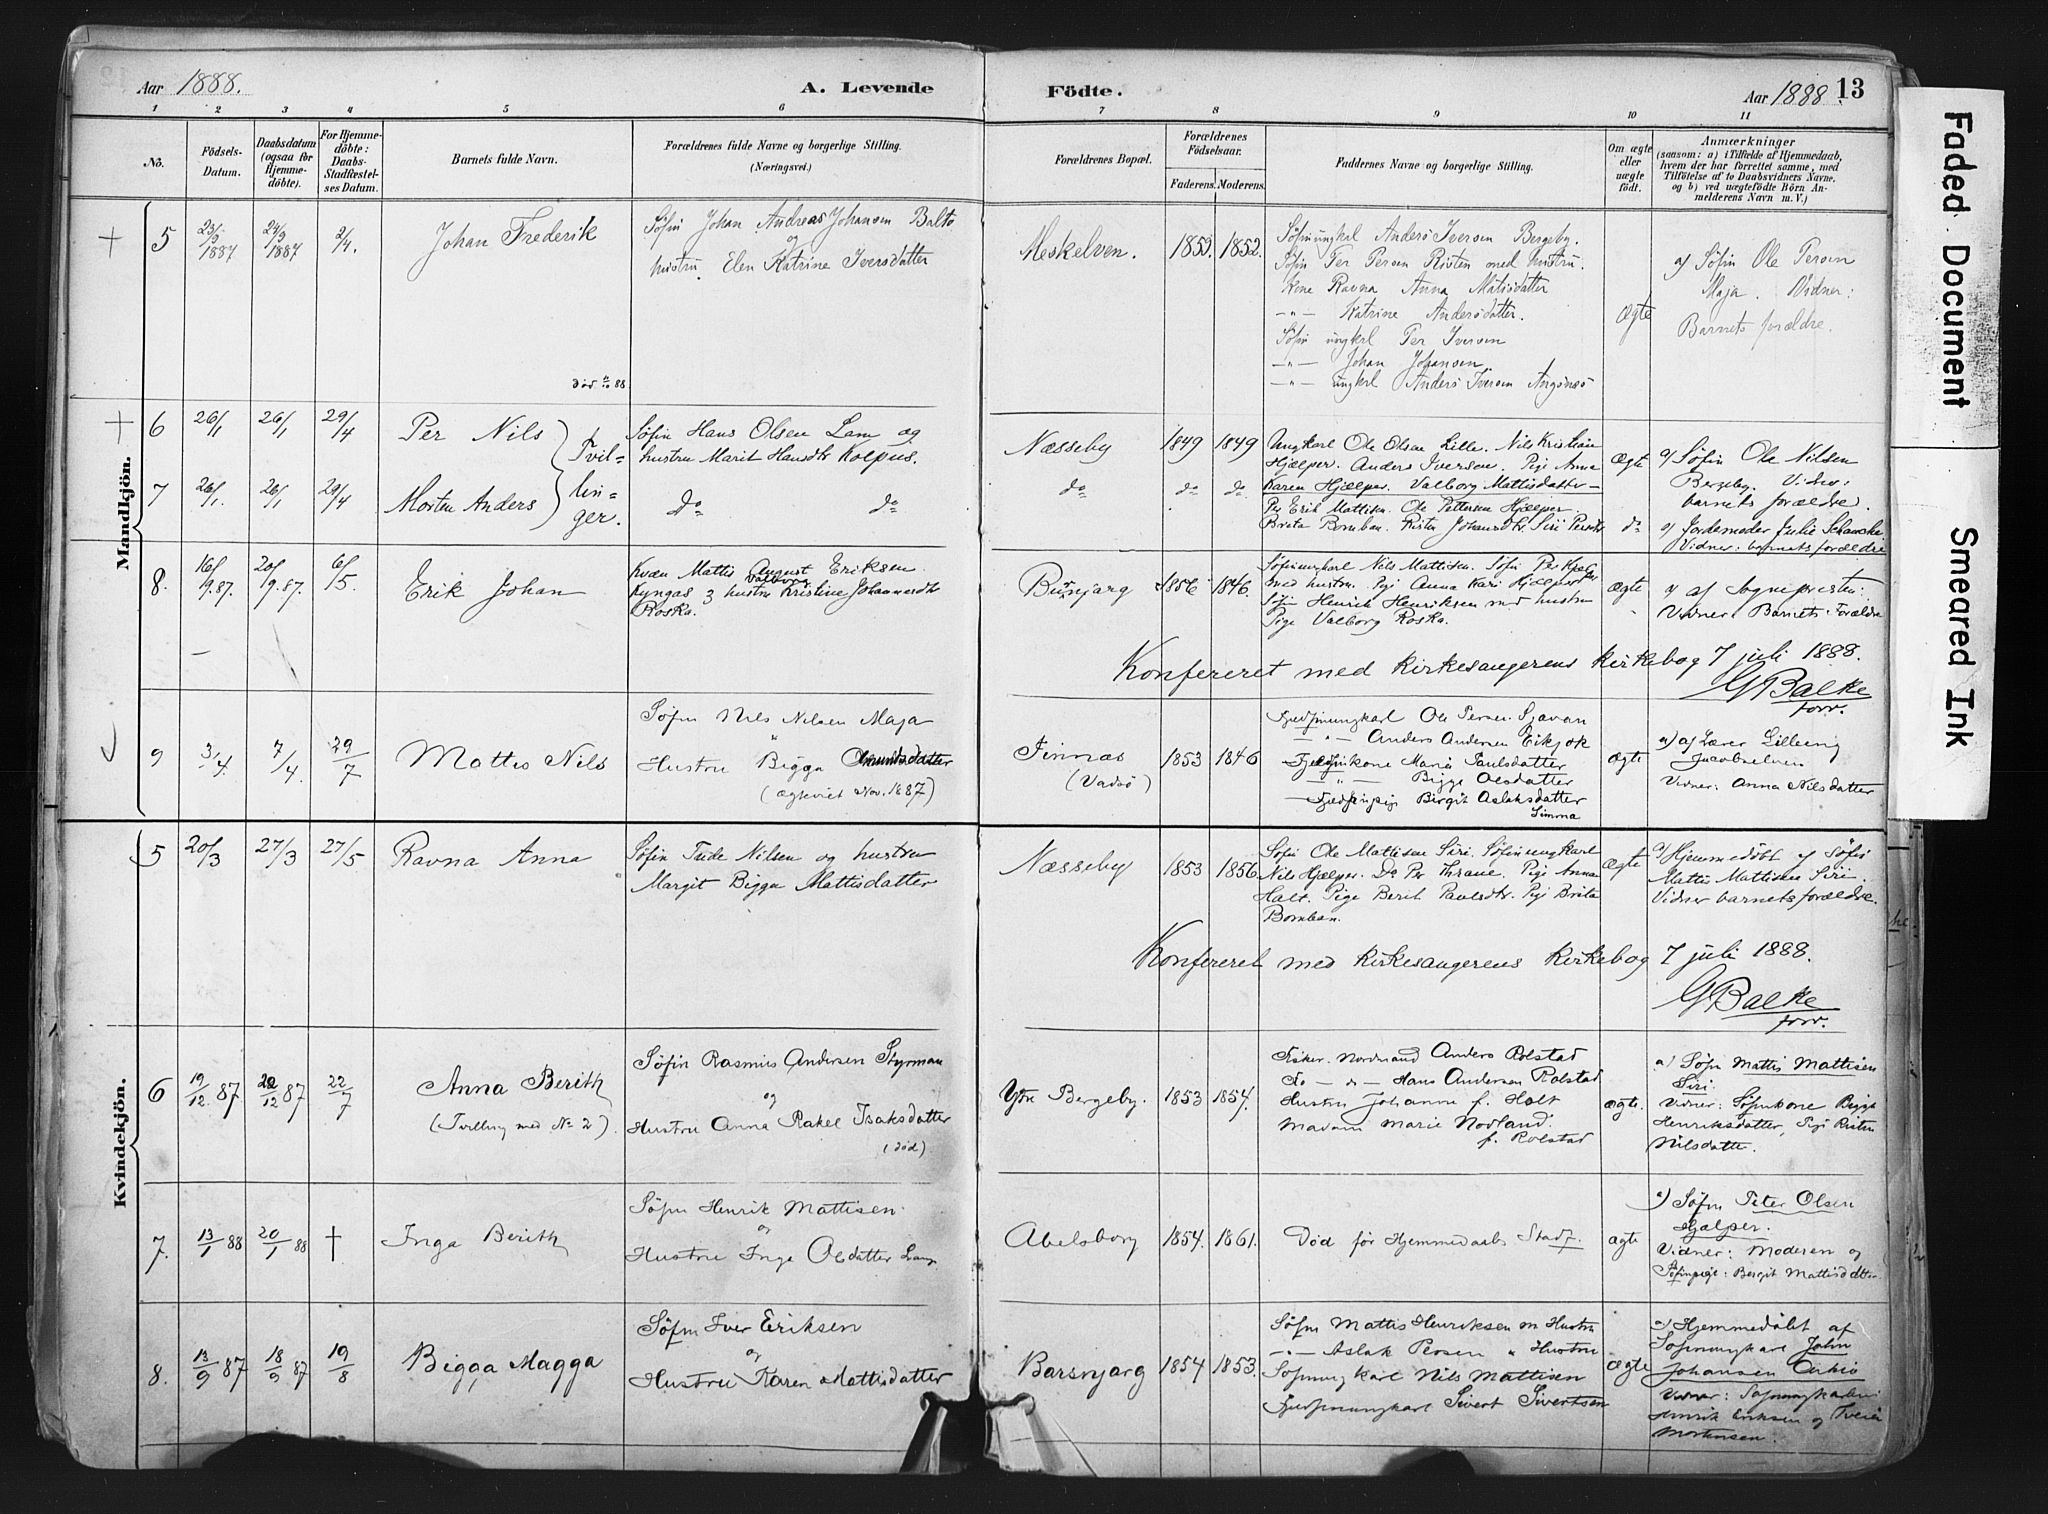 Aar 1888.
A. Levende
Födte.
Aar 1888.
13
1 2 3 4 5 6 7 8 9 10 11
No.
Födsels-
Datum.
Daabsdatum
(ogsaa for
Hjemme-
döbte).
For Hjemme-
döbte:
Daabs-
Stadfæstel-
ses Datum.
Barnets fulde Navn.
Forældrenes fulde Navne og borgerlige Stilling.
(Næringsvei.)
Forældrenes Bopæl.
Forældrenes
Födselsaar.
Faderens. Moderens.
Faddernes Navne og borgerlige Stilling.
Om ægte
eller
uægte
födt.
Anmærkninger
(saasom: a) i Tilfælde af Hjemmedaab,
hvem der har forrettet samme, med
Tilföielse af to Daabsvidners Navne.
og b) ved uægtefödte Börn An-
melderens Navn m. V.)
Mandkjön.
5 23/9 1887 24/9 1887 2/4. Johan Frederik
Söfin Johan Andreas Johansen Balto
og
hustru. Elen Katrine Iversdatter
Meskelven. 1853. 1852.
Söfinungkrl Anders Iversen Bergeby.
Söfin Per Persen Risten med hustru.
Kone Ravna Anna Matisdatter
—"— Katrine Andersdatter.
Söfin ungkrl Per Iversen
—"— Johan Johansen
—"— ungkrl Anders Iversen Angsnæs
Ægte
a) Söfin Ole Persen
Maja. Vidner:
Barnets forældre.
6 26/1 26/1 29/4 Per Nils
Söfin Hans Olsen Lam og
hustru Marit Hansdtr Kolpus.
Næsseby 1849 1849
Ungkarl Ole Olsen Lille. Nils Kristian
Hjælper. Anders Iversen. Pige Anna
Karen Hjælper. Valborg Mattisdatter
Ægte
a) Söfin Ole Nilsen
Bergeby. Vidner:
barnets forældre.
Tvil-
lin-
ger.
7 26/1. 26/1. 29/4 Morten Anders
do do
do do do
Per Erik Mattisen. Ole Pettersen Hjælper.
Brita Bomban. Kisten Johansdtr. Siri Persdtr
do
a) Jordemoder Julie Schancke
Vidner: barnets forældre
8. 16/9.87. 20/9.87. 6/5. Erik Johan
Kvæn Mattis August Eriksen
Kyngas & hustru Kristine Johannesdtr
Roska.
Bunjarg 1856 1846
Söfinungkarl Nils Mattisen. Söfin Per Hjælper
med hustru. Pige Anna Kari Hjælper
Söfin Henrik Henriksen med hustru
Pige Valborg Roska.
Ægte
a) af Sognepresten:
Vidner Barnets Forældre
Konfereret med kirkesangerens kirkebog 7 juli 1888.
G Balke
forr.
9 3/4 7/4. 29/7 Mattis Nils
Söfin Nils Nilsen Maja
Hustru Bigga
(Ægteviet Nov. 1887)
Finnæs
(Vadsö)
1853 1846
Fjeldfinungkarl Ole Persen
—"— Anders Andersen
Fjeldfinkone Marie Paulsdatter
—"— Bigge Olsdatter
Fjeldfinpige Birgit Aslaksdatter
Simma
ægte
a) af Lærer Lilleeng
Jacobselven
Vidner: Anna Nilsdatter
Kvindekjön.
5 20/3 27/3 27/5 Ravna Anna
Söfin Tude Nilsen og hustru
Margit Bigga Mattisdatter
Næsseby 1853 1856
Söfin Ole Mattisen Siri. Söfinungkarl
Nils Hjælper. Do Per Thrane. Pige Anna
Halt. Pige Berit Paulsdtr. Pige Brita
Bomban.
Ægte
a) Hjemmedöbt af Söfin
Mattis Mattisen Siri.
Vidner barnets forældre.
Konfereret med kirkesangerens kirkebog 7 juli 1888.
G Balke
forr.
6 19/12 87 20/12 87 22/7 Anna Berith
(Tvilling med No 2).
Söfin Rasmus Andersen Styrman
og
Hustru Anna Rakel Isaksdatter
(död)
Ytre Bergeby. 1853 1854.
Fisker. Nordmand Anders Rolstad
Do — " — Hans Andersen Rolstad
Hustru Johanne f. Holt
Madam Marie Norland.
f. Rolstad
ægte.
a) Söfin Mattis Mattisen
Siri.
Vidner: Söfinkone Bigga
Henriksdatter, Pige Risten
Nilsdatter.
7. 13/1 88 20/1 88 † Inga Berith
Söfin Henrik Mattisen
og
Hustru Inga Olsdatter Lam
Abelsborg 1854. 1861.
Död för Hjemmedaabs Stadf.
ægte
a) Söfin Peter Olsen
Hjælper.
Vidner: Moderen og
Söfinpige: Bergit Mattisdatter
8. 13/9 87 18/9 87 19/8 Bigga Magga
Söfin Iver Eriksen
og
Hustru Karen Mattisdatter
Barsnjarg 1854 1853.
Söfin Mattis Henriksen m Hustru
—"— Aslak Persen " Hustru
Söfinungkarl Nils Mattisen
Fjeldfinungkarl Sivert Sivertsen
Ægte
a) Hjemmedöbt af
Söfinungkarl John
Johansen
Vidner: Söfinungkarlene
Henrik Eriksen og
Mortensen.
Faded Document
Smeared Ink